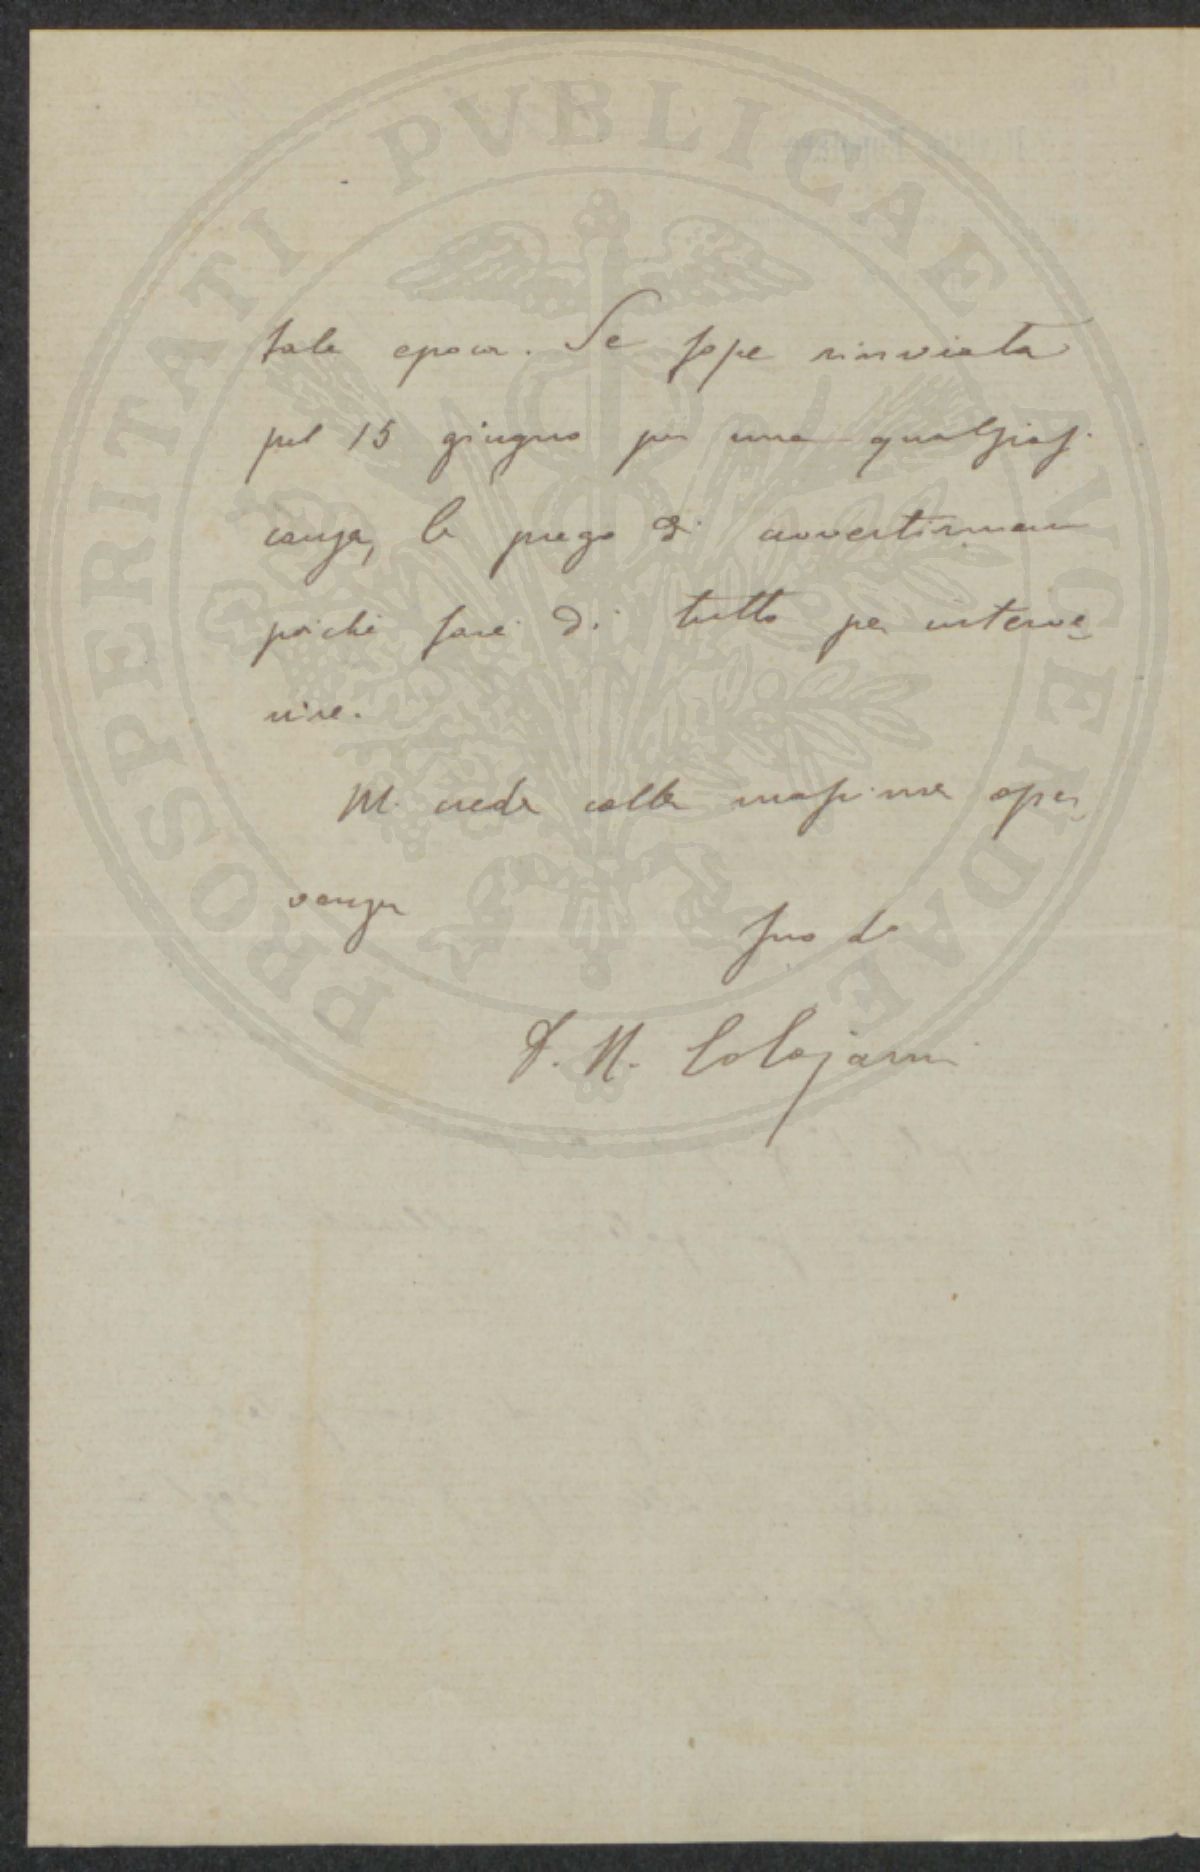 PROSPERITATI PVBLICAE AVGENDAE
tale epoca. Se fosse rinviata
pel 15 giugno per una qualsiasi
causa, la prego di avvertirmene
poichè farei di tutto per interve-
nire.
Mi creda colla massima osser-
vanza
Suo
D. N. Colajanni